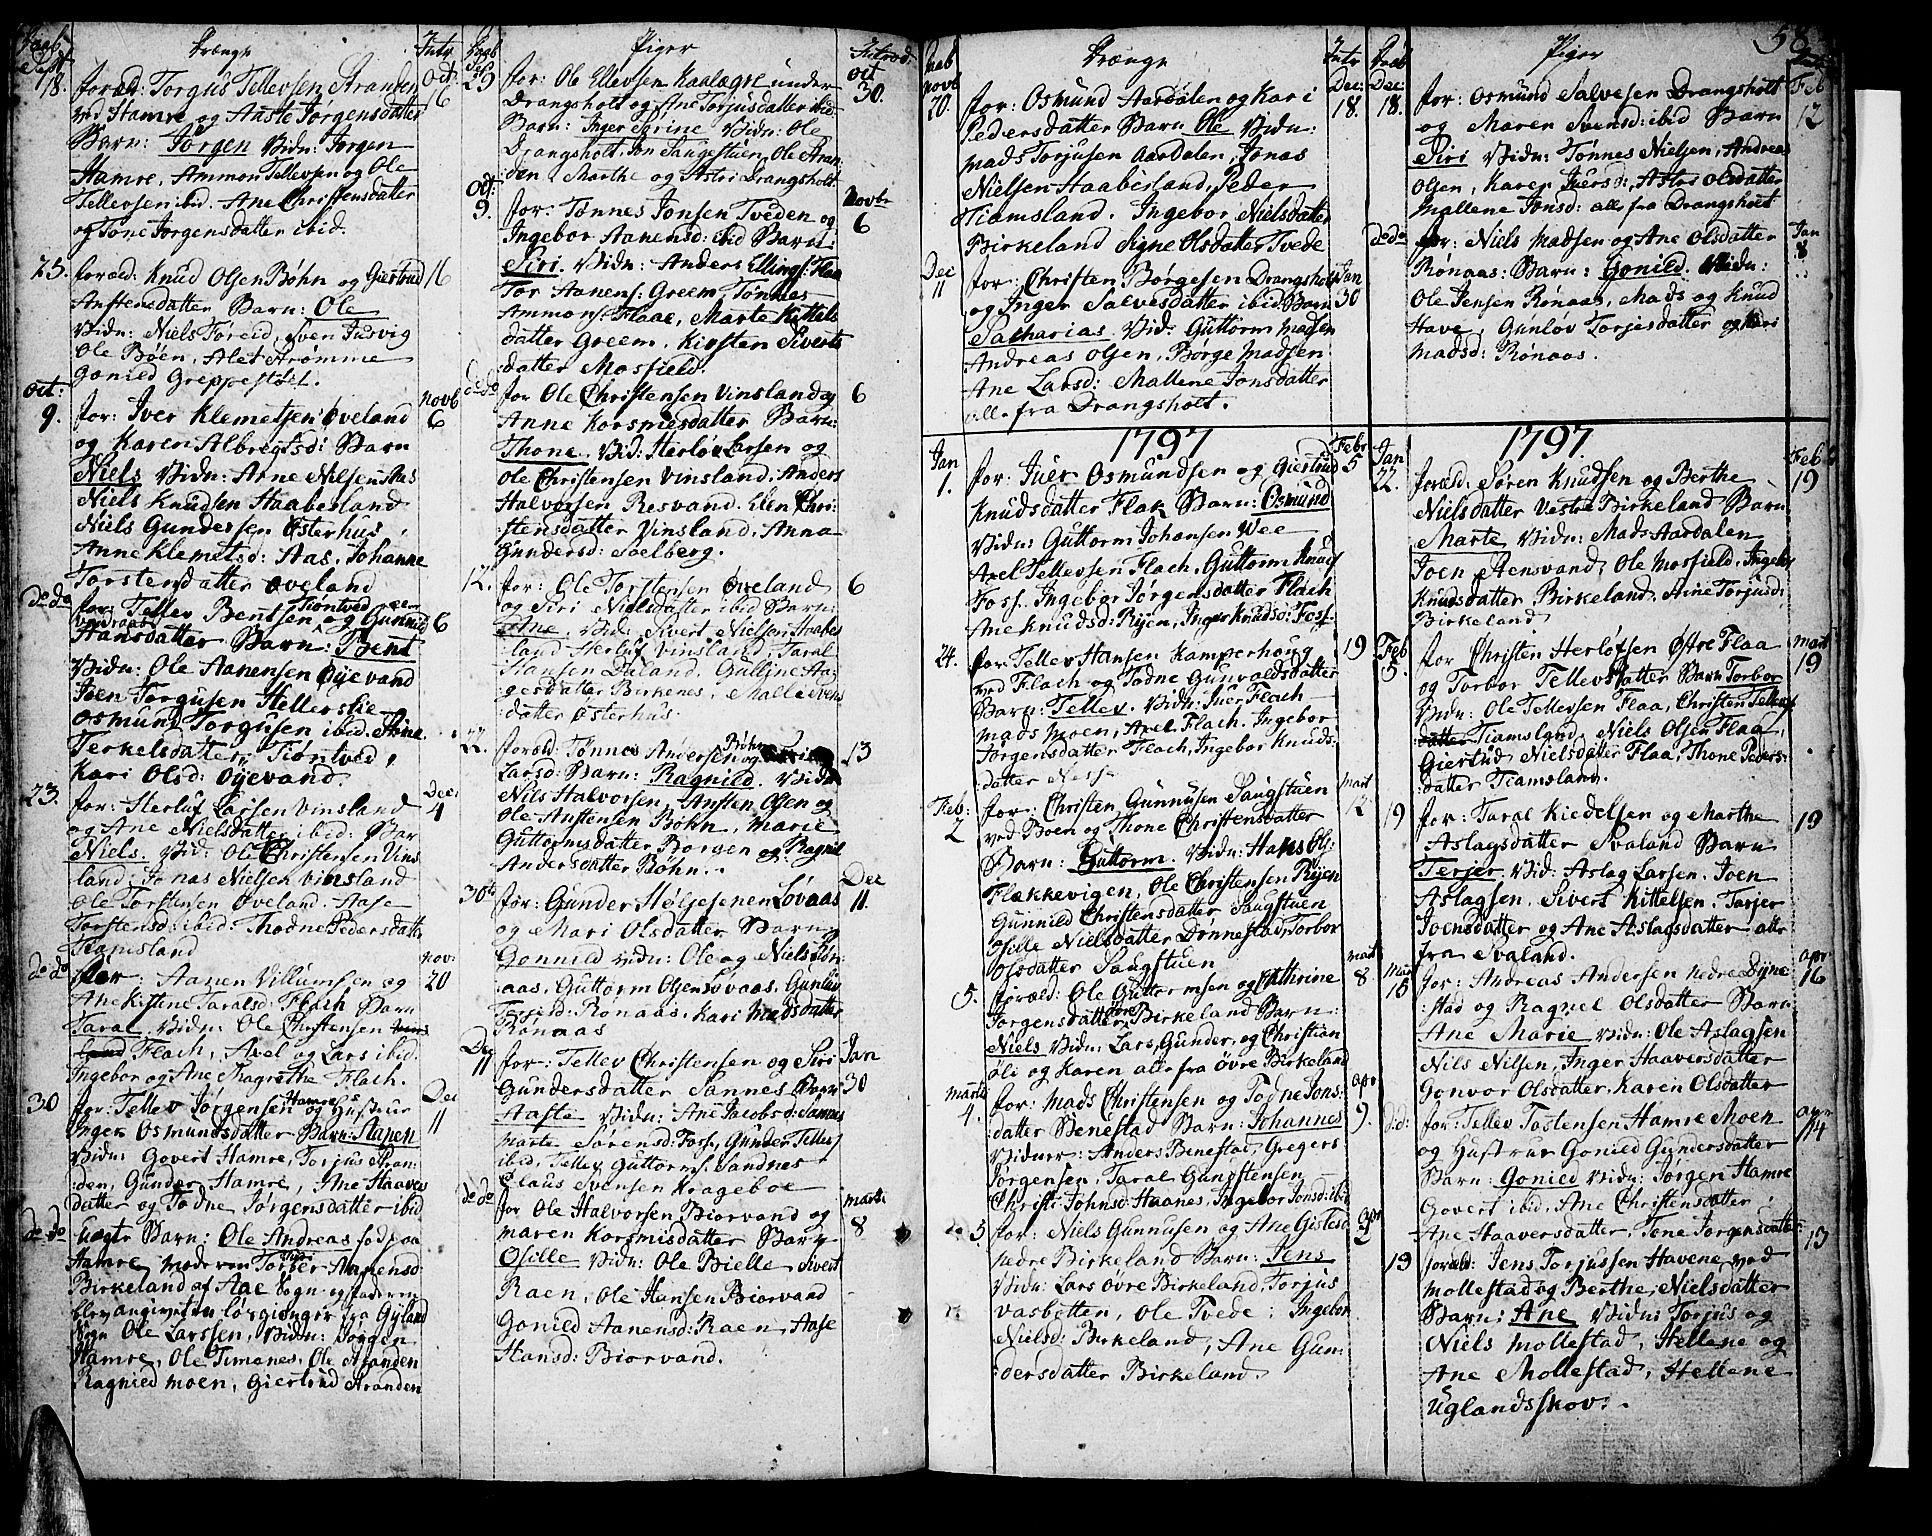 Daab
Drænge
Intr
Sept
18.
foræld: Torgus Tellevsen Stranden
Oct.
16
ved Hamre og Aaste Jørgensdatter
Barn: Jørgen Vidn: Jørgen
Hamre, Ammon Tellevsen og Ole
Tellevsen ibid. Ane Christensdatter
og Tone Jørgensdatter ibid.
25.
foræld: Knud Olsen Bøhn og Giertrud
16
Anstensdatter Barn: Ole
Vidn: Niels Føreid, Sven Jusvig
Ole Bøen, Alet Strømme
Gonild Greppestøl.
Oct:
9.
for: Iver Klemetsen Øveland
Novb
6
og Karen Albregtsd: Barn
Niels Vidn: Arne Nilsen Aas
Niels Knudsen Haabesland
Niels Gundersen Østerhus
Anne Klemetsd: Aas, Johanne
Torstensdatter Øveland
do do
for: Tellev Bentsen Tiontved og Gunnild
6
Hansdatter Barn: Bent
Vidn: Ole Aanensen Øyevand
Joen Torgusen Hellerslie
Osmund Torgusen ibid. Stine
Terkelsdatter Tiontved,
Kari Olsd: Øyevand.
23.
for: Herluf Larsen Vinsland
Dec:
4
og Ane Nielsdatter ibid: Barn
Niels. Vid: Ole Christensen Vins
land, Jonas Nielsen Vinsland
Ole Torstensen Øveland. Aase
Torstensd: ibid: Thodne Pedersdatter
Tiamsland
do do
for: Aanen Villumsen og
Nov:
20
Ane Kistine Taralsd: Flach Barn
Taral. Vidn: Ole Christensen Vins
land Flach, Axel og Lars ibid.
Ingebor og Ane Magrethe Flach.
30
for: Tellev Jørgensen Hamre og Hustrue
Dec
11
Inger Osmundsdatter Barn: Stapen
Vidn: Govert Hamre, Torjus Stran
den, Gunder Hamre, Ane Haavers
datter og Todne Jørgensdatter ibid
do do
Uægte Barn: Ole Andreas født paa
Hamre, moderen Torber Aanensd
Birkeland af Aae Sogn og faderen
blev angivet en løsgienger fra Gyland
Sogn Ole Larssen, Vidn: Jørgen
Hamre, Ole Timenes, Ole Stranden
Ragnied Moen, Giertrud Stranden
Daab
Piger
Introd:
Sept
29
for: Ole Ellevsen Kaalagre under
Oct
30.
Drangsholt og Ane Torjusdatter ibid
Barn: Inger Serine Vidn: Ole
Drangsholt, Jon Saugestuen, Ole Stran
den, Marthe og Astri Drangsholt
Oct:
9.
for: Tønnes Jonsen Tveden og
Novbr
6
Ingebor Aanensd: ibid Barn:
Siri. Vidn: Anders Ellings: Flaa
Tor Aanens: Greem Tønnes
Ammons: Flaae, Marte Kittels
datter Greem, Kirsten Siverts
datter Mosfield.
do do
for Ole Christensen Vinsland og
6
Anne Korsmesdatter Barn:
Thone. Vid: Herløv Larsen og
Ole Christensen Vinsland. Anders
Halvorsen Resvand. Elen Chri-
stensdatter Vinsland. Anna
Gundersd: Soelberg.
12.
for: Ole Torstensen Øveland
6
og Siri Nielsdatter ibid Barn:
Ane. Vid: Sivert Nielsen Haabes
land Herluf Vinsland, Taral
Hansen Daland, Gulline Aa
gesdatter Birkenes, Malle Svens
datter Østerhus.
22.
foræld: Tønnes Andersen Bøhn og
13
Larsd: Barn: Ragnild. Vidn
Nils Halvorsen, Ansten Olsen og
Ole Anstensen Bøhn, Marie
Guttormsdatter Borgen og Ragnel
Andersdatter Bøhn.
30te
for: Gunder Høljesen Løvaas
Dec
11.
og Mari Olsdatter Barn
Gonnild Vidn: Ole og Niels Røn:
aas, Guttorm Olsen Løvaas. Gunløv
Rønaas, Kari Madsdatter
Rønaas
Dec
11
for: Tellev Christensen og Siri
Jan
30
Gundersdatter Sannes Barn
Aaste Vidn: Ane Jacobsd: Sannes
Marte Sørensd: Foss, Gunder Tellefs
ibid, Tellev Guttorms. Sandnes
Claus Svensen Krageboe
do do
for Ole Halvorsen Biorvand og
Marti
8
Maren Korsmisdatter Barn
Osille Vidn: Ole Bielle Sivert
Raen, Ole Hansen Biorvand
Gonild Aanensd: Raen, Aase
Hansd: Biorvand.
Daab
Drænge
Intr
Novb
20.
for: Osmund Aardalen og Kari
Dec:
18.
Pedersdatter Barn Ole Vidn:
Mads Torjusen Aardalen, Jonas
Nielsen Haabesland, Peder
Tiamsland. Ingebor Nielsdatter
Birkeland Signe Olsdatter Tvede
Dec
11
for: Christen Børgesen Drangsholt
Jan
30
og Inger Salvesdatter ibid Barn
Sacharias. Vid: Guttorm Madsen
Andreas Olsen, Børge Madsen
Ane Larsd: Mallene Jonsdatter
alle fra Drangsholt.
1797
Jan
1.
for: Juer Osmundsen og Giertrud
Febr
5
Knudsdatter Flak Barn: Osmund
Vidn: Guttorm Johansen Wee
Axel Tellevsen Flach, Guttorm Knuds
Foss. Ingebor Jørgensdatter Flach
Ane Knudsd: Ryen, Inger Knudsd: Foss.
24.
for: Tellev Hansen Kamperhoug
19
ved Flach og Todne Gunvaldsdatter
Barn: Tellev. Vidn: Juer Flach
Mads Moen, Axel Flach. Ingebor
Jørgensdatter Flach, Ingebor Knuds:
datter Nesse
Feb:
2
for: Christen Gunnusen Saugstuen
Mart
12
ved Boen og Thone Christensdatter
Barn: Guttorm. Vidn: Hans Ols:
Flækkevigen, Ole Christensen Ryen
Gunnild Christensdatter Saugstuen
Osille Nielsdatter Dønnestad, Torbor
Olsdatter Saugstuen
5.
foræld: Ole Guttormsen og Cathrine
Mart
8
Jørgensdatter øvre Birkeland Barn:
Niels Vidn: Lars, Gunder, og Christian
Oli og Karen alle fra øvre Birkeland
Martii
4.
for: Mads Christensen og Todne Jons:
Apr
9.
datter Benestad Barn: Johannes
Vidner: Anders Benestad, Gregers
Jørgensen, Taral Gunstensen
Christi Johnsd: Haanes, Ingebor Jonsd: ibid
do
5.
for: Niels Gunnusen og Ane Gistesd
Apr
2
nedre Birkeland Barn: Jens
Vidn: Lars øvre Birkeland, Torjus
Vasbotten, Ole Tvede, Ingebor
Nielsd: Birkeland, Ane Gun
dersdatter Birkeland.
58
Daab
Piger
Dec:
18.
for: Osmund Salvesen Drangsholt
Feb
12
og Maren Svensd: ibid Barn
Siri Vidn: Tønnes Nielsen, Andreas
Olsen, Karen Juersd:, Astri Olsdatter
Mallene Jonsd: alle fra Drangsholt
do do
for: Niels Madsen og Ane Olsdatter
Jan
8
Rønaas: Barn: Gonild. Vidn:
Ole Jensen Rønaas, Mads og Knud
Have, Gunløv Torjesdatter og Kari
Madsd: Rønaas.
1797.
Jan
22.
foræld: Søren Knudsen og Berthe
Feb
19
Nielsdatter Vestre Birkeland Barn
Marte Vidn: Mads Aardalen
Joen Stensvand, Ole Mosfield, Ingebor
Knudsdatter Birkeland. Anne Torjusd:
Birkeland
Feb
5.
for Christen Herløfsen Østre Flaa
Mart
19
og Torbor Tellevsdatter Barn Torbor
Vidn: Ole Tellevsen Flaa, Christen Tellevs
datter Tiamsland, Niels Olsen Flaa,
Giertrud Nielsdatter Flaa, Thone Peders-
datter Tiamsland.
19
for: Taral Kiedelsen og Marthe
19
Aslagsdatter Svaland Barn
Terjer. Vid: Aslag Larsen. Joen
Aslagsen. Sivert Kittelsen. Tarjer
Joensdatter og Ane Aslagsdatter alle
fra Svaland.
Mart
15
for: Andreas Andersen nedre Dyne
Apr
16
stad og Ragnel Olsdatter Barn
Ane Marie Vidn: Ole Aslagsen
Nils Nilsen, Inger Haaversdatter
Gonvor Olsdatter, Karen Olsdatter
did:
for: Tellev Tostensen Hamre Moen
Apr
14
og Hustrue Gonild Gundersdatter
Barn: Gonied Vidn: Jørgen Hamre
Govert ibid, Ane Christensdatter
Ane Haaversdatter, Tone Jørgensdatter
19
foræld: Jens Torjussen Havene ved
13
Mollestad og Berthe Nielsdatter
Barn: Ane Vidn: Torjus og
Niels Mollestad, Hellene og
Ane Mollestad, Hellene
Uglandsskov.